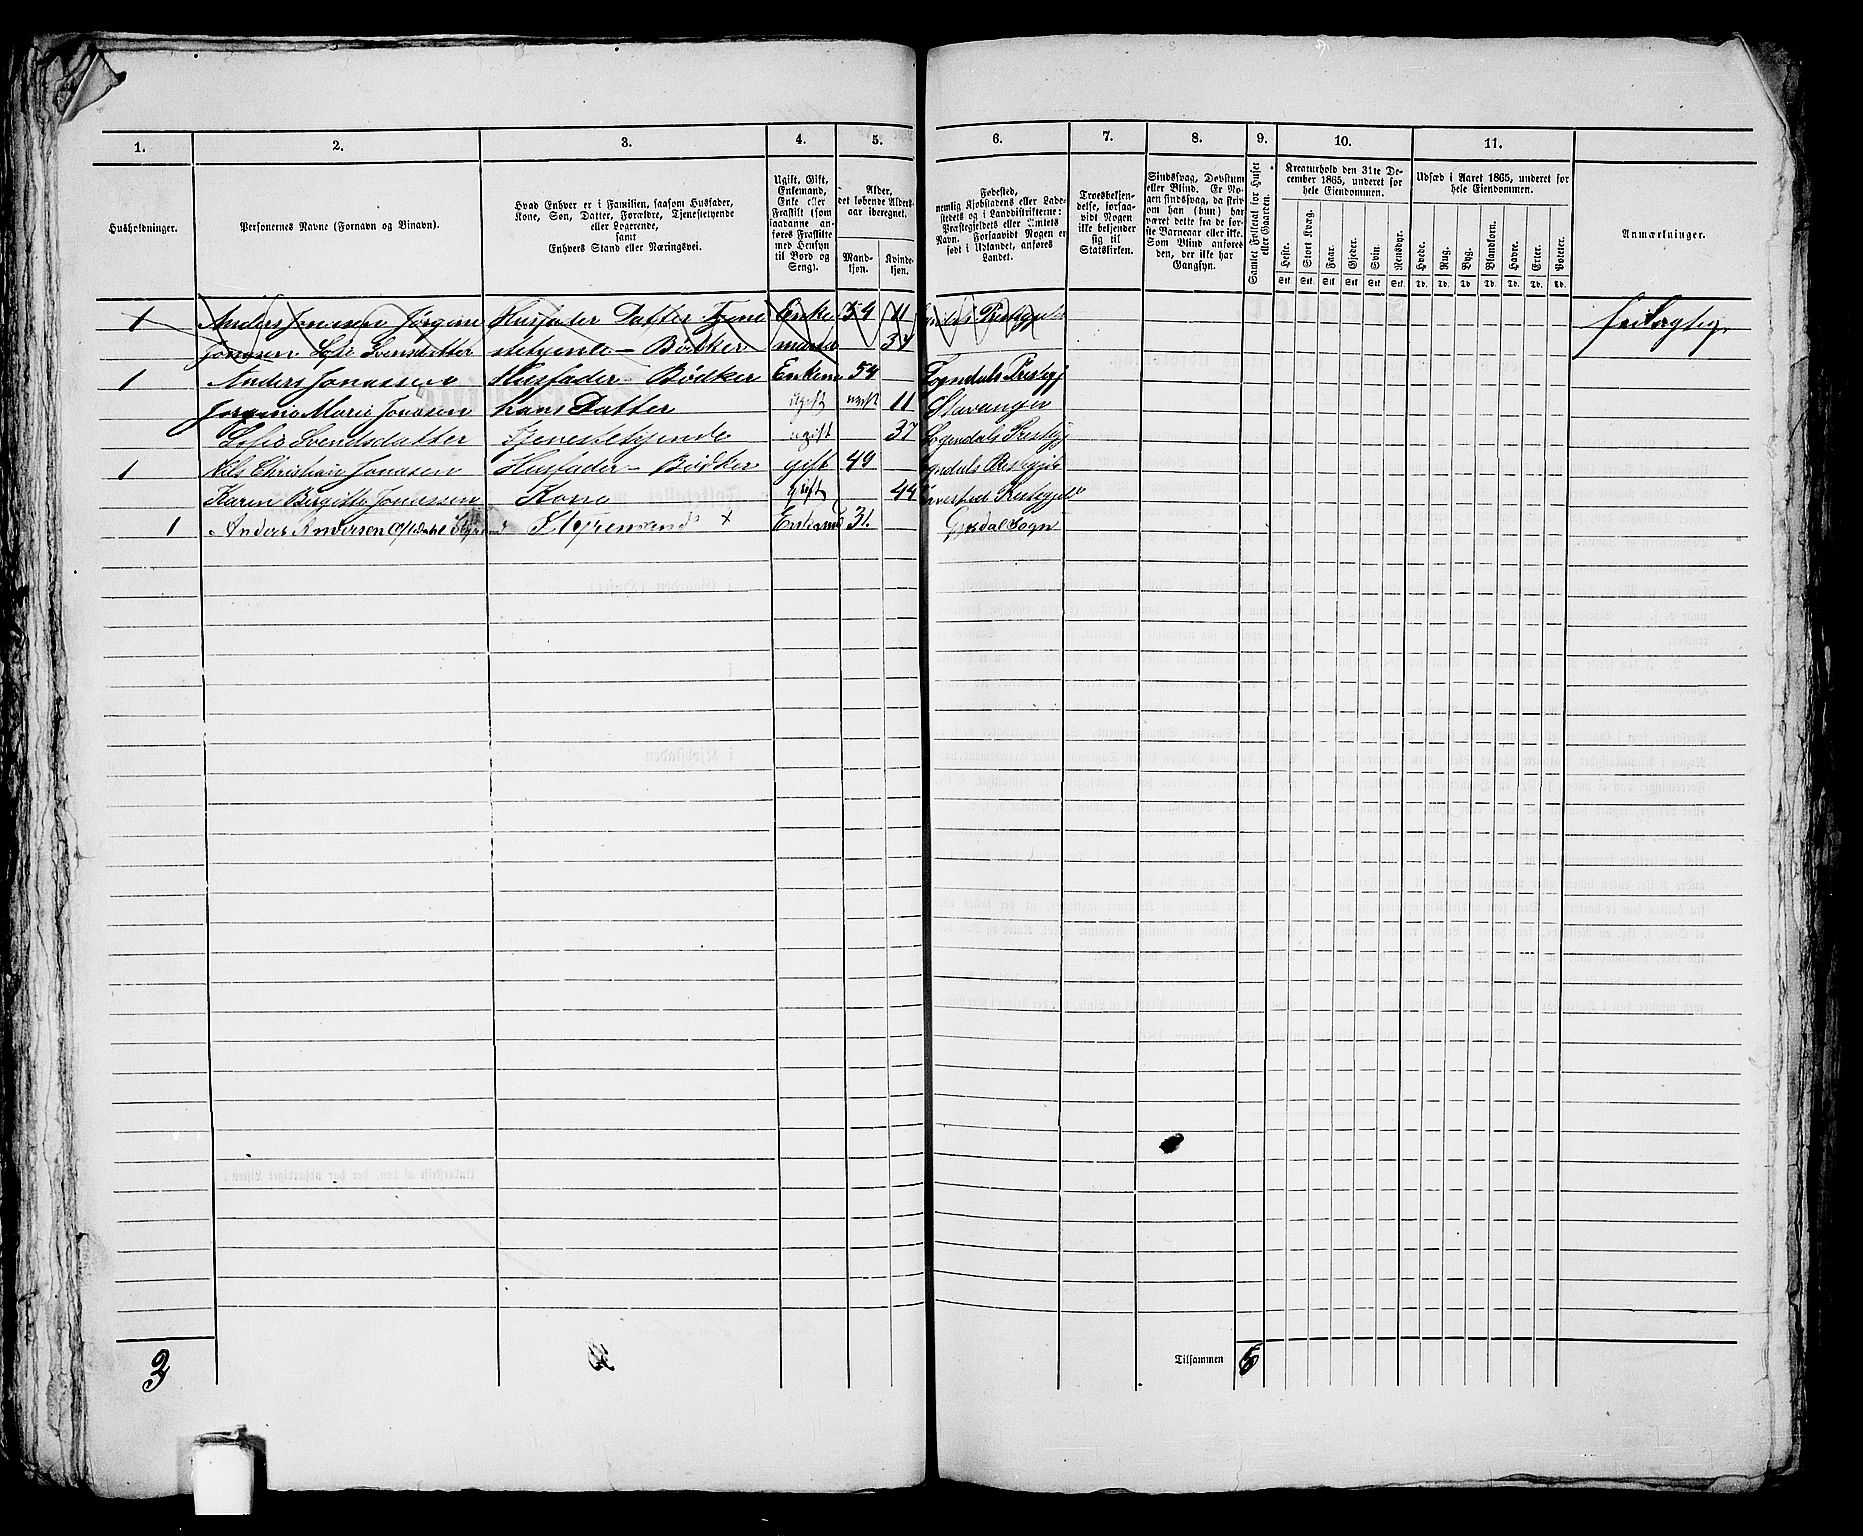 1. 2. 3. 4. 5. 6. 7. 8. 9. 10. 11.
Husholdninger.
Personernes Navne (Fornavn og Tilnavn).
Hvad Enhver er i Familien, saasom Husfader,
Kone, Søn, Datter, Forældre, Tjenestetyende
eller Logerende,
samt
Enhvers Stand eller Næringsvei.
Ugift, Gift,
Enkemand,
Enke eller
Fraskilt (som
saadanne an-
føres Fraskilte
med Hensyn
til Bord og
Seng).
Alder,
det løbende Alders-
aar iberegnet.
Mand-
kjøn.
Kvinde-
kjøn.
Fødested,
nemlig Kjøbstadens eller Lade-
stedets og i Landdistrikterne:
Præstegjeldets eller Amtets
Navn. Forsaavidt Nogen er
født i Udlandet, anføres
Landet.
Troesbekjen-
delse, forsaa-
vidt Nogen
ikke bekjender
sig til
Statskirken.
Sindssvag, Døvstum
eller Blind. Er No-
gen sindssvag, da skriv
om han (hun) har
været dette fra de før-
ste Barneaar eller ikke.
Som Blind anføres
den, der ikke har
Gangsyn.
Samlet Folketal for Huset
eller Gaarden.
Kreaturhold den 31te De-
cember 1865, underet for
hele Eiendommen.
Heste. Stort Kvæg. Faar. Gjeder. Svin. Rensdyr.
Stk. Stk. Stk. Stk. Stk. Stk.
Udsæd i Aaret 1865, underet for
hele Eiendommen.
Hvede. Rug. Byg. Blandkorn. Havre. Erter. Poteter.
Td. Td. Td. Td. Td. Td. Td.
Anmærkninger.
1 Anders Jonassen Jörgine Husfader Datter Tjene Enke 54 11
Jonasen Sofie Svensdatter stetyende - Bödker mand 37
1 Anders Jonassen Husfader - Bödker Enkem 54 Sogndals Prestegj
Jorgine Marie Jonasen hans Datter ugift 11 Stavanger
Sofie Svendsdatter Tjenestetyende ugift 37 Sogndals Prestegj
1 Nils Christian Jonasen Husfader - Bödker gift 49
Karen Bergitte Jonassen Kone gift 44
1 Anders Andersen Styremand x Enkemd 31 Gjesdal Sogn
3
Tilsammen 6